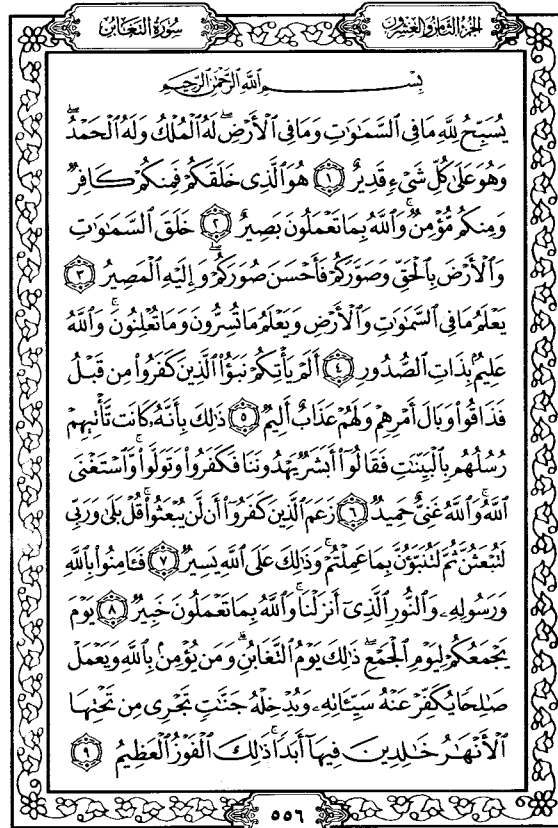 سُورَةُ التَّغَابُنِ
الجُزْءُ الثَّامِنُ وَالعِشْرُونَ
بِسْمِ اللَّهِ الرَّحْمَٰنِ الرَّحِيمِ
يُسَبِّحُ لِلَّهِ مَا فِي السَّمَٰوَٰتِ وَمَا فِي الْأَرْضِ ۖ لَهُ الْمُلْكُ وَلَهُ الْحَمْدُ ۖ
وَهُوَ عَلَىٰ كُلِّ شَيْءٍ قَدِيرٌ ١ هُوَ الَّذِي خَلَقَكُمْ فَمِنكُمْ كَافِرٌ
وَمِنكُم مُّؤْمِنٌ ۚ وَاللَّهُ بِمَا تَعْمَلُونَ بَصِيرٌ ٢ خَلَقَ السَّمَٰوَٰتِ
وَالْأَرْضَ بِالْحَقِّ وَصَوَّرَكُمْ فَأَحْسَنَ صُوَرَكُمْ ۖ وَإِلَيْهِ الْمَصِيرُ ٣
يَعْلَمُ مَا فِي السَّمَٰوَٰتِ وَالْأَرْضِ وَيَعْلَمُ مَا تُسِرُّونَ وَمَا تُعْلِنُونَ ۚ وَاللَّهُ
عَلِيمٌ بِذَاتِ الصُّدُورِ ٤ أَلَمْ يَأْتِكُمْ نَبَؤُا الَّذِينَ كَفَرُوا مِن قَبْلُ
فَذَاقُوا وَبَالَ أَمْرِهِمْ وَلَهُمْ عَذَابٌ أَلِيمٌ ٥ ذَٰلِكَ بِأَنَّهُ كَانَت تَّأْتِيهِمْ
رُسُلُهُم بِالْبَيِّنَٰتِ فَقَالُوا أَبَشَرٌ يَهْدُونَنَا فَكَفَرُوا وَتَوَلَّوا ۚ وَّاسْتَغْنَى
اللَّهُ ۚ وَاللَّهُ غَنِيٌّ حَمِيدٌ ٦ زَعَمَ الَّذِينَ كَفَرُوا أَن لَّن يُبْعَثُوا ۚ قُلْ بَلَىٰ وَرَبِّي
لَتُبْعَثُنَّ ثُمَّ لَتُنَبَّؤُنَّ بِمَا عَمِلْتُمْ ۚ وَذَٰلِكَ عَلَى اللَّهِ يَسِيرٌ ٧ فَـَٔامِنُوا بِاللَّهِ
وَرَسُولِهِۦ وَالنُّورِ الَّذِي أَنزَلْنَا ۚ وَاللَّهُ بِمَا تَعْمَلُونَ خَبِيرٌ ٨ يَوْمَ
يَجْمَعُكُمْ لِيَوْمِ الْجَمْعِ ۖ ذَٰلِكَ يَوْمُ التَّغَابُنِ ۗ وَمَن يُؤْمِن بِاللَّهِ وَيَعْمَلْ
صَٰلِحًا يُكَفِّرْ عَنْهُ سَيِّـَٔاتِهِۦ وَيُدْخِلْهُ جَنَّٰتٍ تَجْرِي مِن تَحْتِهَا
الْأَنْهَٰرُ خَٰلِدِينَ فِيهَا أَبَدًا ۚ ذَٰلِكَ الْفَوْزُ الْعَظِيمُ ٩
٥٥٦